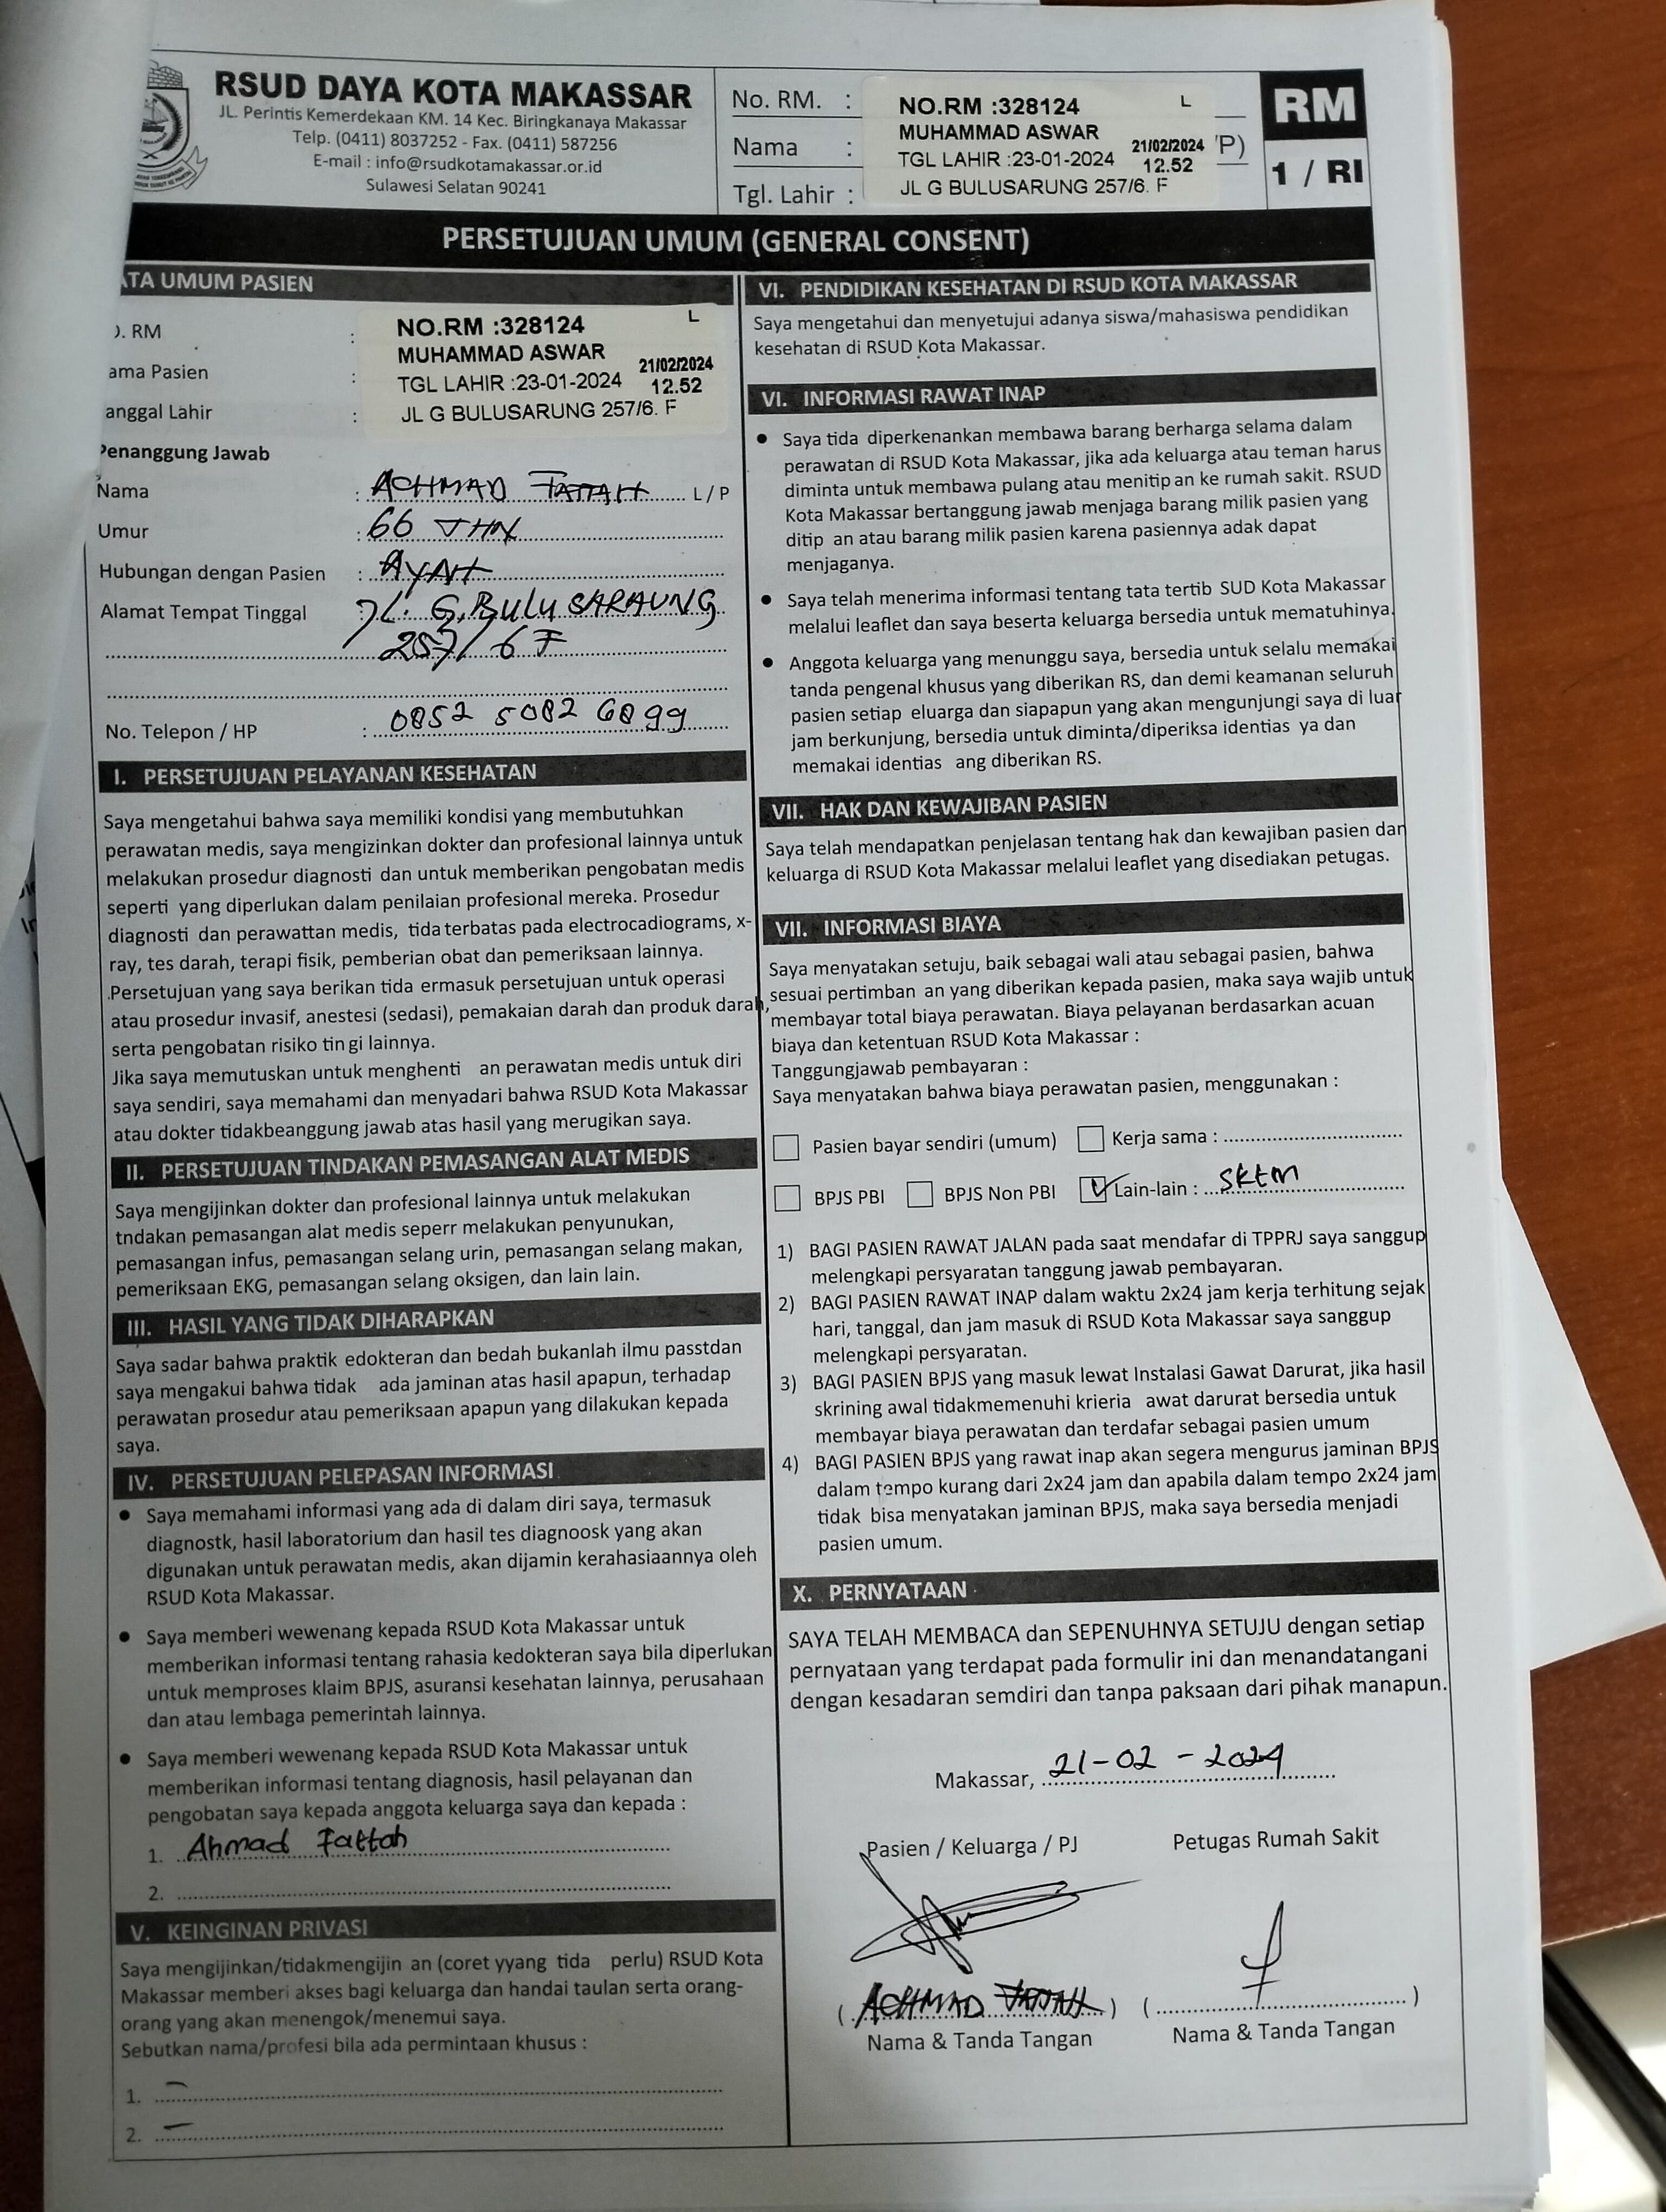 RSUD DAYA KOTA MAKASSAR
JL. Perintis Kemerdekaan KM. 14 Kec. Biringkanaya Makassar
Telp. (0411) 8037252 - Fax. (0411) 587256
E-mail : info@rsudkotamakassar.or.id
Sulawesi Selatan 90241
No. RM. :
Nama :
Tgl. Lahir :
NO.RM :328124 L
MUHAMMAD ASWAR
TGL LAHIR :23-01-2024 21/02/2024 12.52
JL G BULUSARUNG 257/6. F
P)
RM
1 / RI
PERSETUJUAN UMUM (GENERAL CONSENT)
TA UMUM PASIEN
. RM :
ama Pasien :
anggal Lahir :
NO.RM :328124 L
MUHAMMAD ASWAR
TGL LAHIR :23-01-2024 21/02/2024 12.52
JL G BULUSARUNG 257/6. F
Penanggung Jawab
Nama : ACHMAD FATTAH L / P
Umur : 66 THN
Hubungan dengan Pasien : AYAH
Alamat Tempat Tinggal : JL. G. BULU SARAUNG
257/6 F
No. Telepon / HP : 0852 5082 6899
I. PERSETUJUAN PELAYANAN KESEHATAN
Saya mengetahui bahwa saya memiliki kondisi yang membutuhkan
perawatan medis, saya mengizinkan dokter dan profesional lainnya untuk
melakukan prosedur diagnosti dan untuk memberikan pengobatan medis
seperti yang diperlukan dalam penilaian profesional mereka. Prosedur
diagnosti dan perawattan medis, tida terbatas pada electrocadiograms, x-
ray, tes darah, terapi fisik, pemberian obat dan pemeriksaan lainnya.
Persetujuan yang saya berikan tida ermasuk persetujuan untuk operasi
atau prosedur invasif, anestesi (sedasi), pemakaian darah dan produk darah,
serta pengobatan risiko tin gi lainnya.
Jika saya memutuskan untuk menghenti an perawatan medis untuk diri
saya sendiri, saya memahami dan menyadari bahwa RSUD Kota Makassar
atau dokter tidakbeanggung jawab atas hasil yang merugikan saya.
II. PERSETUJUAN TINDAKAN PEMASANGAN ALAT MEDIS
Saya mengijinkan dokter dan profesional lainnya untuk melakukan
tndakan pemasangan alat medis seperr melakukan penyunukan,
pemasangan infus, pemasangan selang urin, pemasangan selang makan,
pemeriksaan EKG, pemasangan selang oksigen, dan lain lain.
III. HASIL YANG TIDAK DIHARAPKAN
Saya sadar bahwa praktik edokteran dan bedah bukanlah ilmu passtdan
saya mengakui bahwa tidak ada jaminan atas hasil apapun, terhadap
perawatan prosedur atau pemeriksaan apapun yang dilakukan kepada
saya.
IV. PERSETUJUAN PELEPASAN INFORMASI
• Saya memahami informasi yang ada di dalam diri saya, termasuk
diagnostk, hasil laboratorium dan hasil tes diagnoosk yang akan
digunakan untuk perawatan medis, akan dijamin kerahasiaannya oleh
RSUD Kota Makassar.
• Saya memberi wewenang kepada RSUD Kota Makassar untuk
memberikan informasi tentang rahasia kedokteran saya bila diperlukan
untuk memproses klaim BPJS, asuransi kesehatan lainnya, perusahaan
dan atau lembaga pemerintah lainnya.
• Saya memberi wewenang kepada RSUD Kota Makassar untuk
memberikan informasi tentang diagnosis, hasil pelayanan dan
pengobatan saya kepada anggota keluarga saya dan kepada :
1. Ahmad Fattah
2.
V. KEINGINAN PRIVASI
Saya mengijinkan/tidakmengijin an (coret yyang tida perlu) RSUD Kota
Makassar memberi akses bagi keluarga dan handai taulan serta orang-
orang yang akan menengok/menemui saya.
Sebutkan nama/profesi bila ada permintaan khusus :
1. –
2. –
VI. PENDIDIKAN KESEHATAN DI RSUD KOTA MAKASSAR
Saya mengetahui dan menyetujui adanya siswa/mahasiswa pendidikan
kesehatan di RSUD Kota Makassar.
VI. INFORMASI RAWAT INAP
• Saya tida diperkenankan membawa barang berharga selama dalam
perawatan di RSUD Kota Makassar, jika ada keluarga atau teman harus
diminta untuk membawa pulang atau menitip an ke rumah sakit. RSUD
Kota Makassar bertanggung jawab menjaga barang milik pasien yang
ditip an atau barang milik pasien karena pasiennya adak dapat
menjaganya.
• Saya telah menerima informasi tentang tata tertib SUD Kota Makassar
melalui leaflet dan saya beserta keluarga bersedia untuk mematuhinya.
• Anggota keluarga yang menunggu saya, bersedia untuk selalu memakai
tanda pengenal khusus yang diberikan RS, dan demi keamanan seluruh
pasien setiap eluarga dan siapapun yang akan mengunjungi saya di luar
jam berkunjung, bersedia untuk diminta/diperiksa identias ya dan
memakai identias ang diberikan RS.
VII. HAK DAN KEWAJIBAN PASIEN
Saya telah mendapatkan penjelasan tentang hak dan kewajiban pasien dan
keluarga di RSUD Kota Makassar melalui leaflet yang disediakan petugas.
VII. INFORMASI BIAYA
Saya menyatakan setuju, baik sebagai wali atau sebagai pasien, bahwa
sesuai pertimban an yang diberikan kepada pasien, maka saya wajib untuk
membayar total biaya perawatan. Biaya pelayanan berdasarkan acuan
biaya dan ketentuan RSUD Kota Makassar :
Tanggungjawab pembayaran :
Saya menyatakan bahwa biaya perawatan pasien, menggunakan :
Pasien bayar sendiri (umum) Kerja sama :
BPJS PBI BPJS Non PBI Lain-lain : SKTM
1) BAGI PASIEN RAWAT JALAN pada saat mendafar di TPPRJ saya sanggup
melengkapi persyaratan tanggung jawab pembayaran.
2) BAGI PASIEN RAWAT INAP dalam waktu 2x24 jam kerja terhitung sejak
hari, tanggal, dan jam masuk di RSUD Kota Makassar saya sanggup
melengkapi persyaratan.
3) BAGI PASIEN BPJS yang masuk lewat Instalasi Gawat Darurat, jika hasil
skrining awal tidakmemenuhi krieria awat darurat bersedia untuk
membayar biaya perawatan dan terdafar sebagai pasien umum
4) BAGI PASIEN BPJS yang rawat inap akan segera mengurus jaminan BPJS
dalam tempo kurang dari 2x24 jam dan apabila dalam tempo 2x24 jam
tidak bisa menyatakan jaminan BPJS, maka saya bersedia menjadi
pasien umum.
X. PERNYATAAN
SAYA TELAH MEMBACA dan SEPENUHNYA SETUJU dengan setiap
pernyataan yang terdapat pada formulir ini dan menandatangani
dengan kesadaran semdiri dan tanpa paksaan dari pihak manapun.
Makassar, 21-02-2024
Pasien / Keluarga / PJ Petugas Rumah Sakit
(ACHMAD FATTAH) ( )
Nama & Tanda Tangan Nama & Tanda Tangan